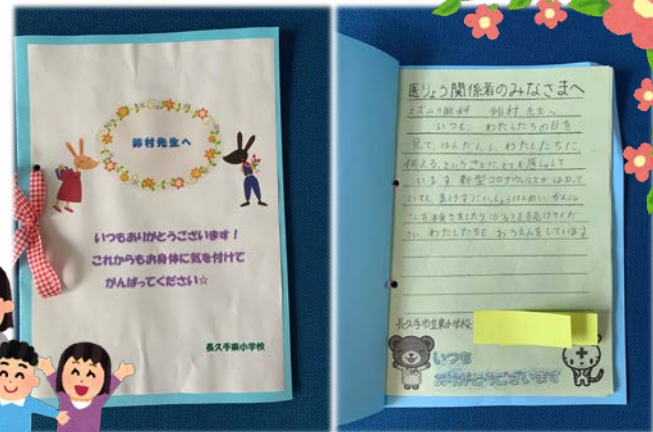 鈴村先生へ
いつもありがとうございます！
これからもお身体に気を付けて
がんばってください☆
長久手東小学校
医りょう関係者のみなさまへ
スズムラ眼科 鈴村先生へ
いつも、わたしたちの目を
見て、はんだんし、わたしたちに
伝える、ということにとても感しゃして
います。新型コロナウィルスがはやって
いても、まけずにいっしょうけんめい、かんじゃ
さんを検さをしたり
さい。わたしたちも おうえんをしています
長久手市立東小学校
いつも
ありがとうございます